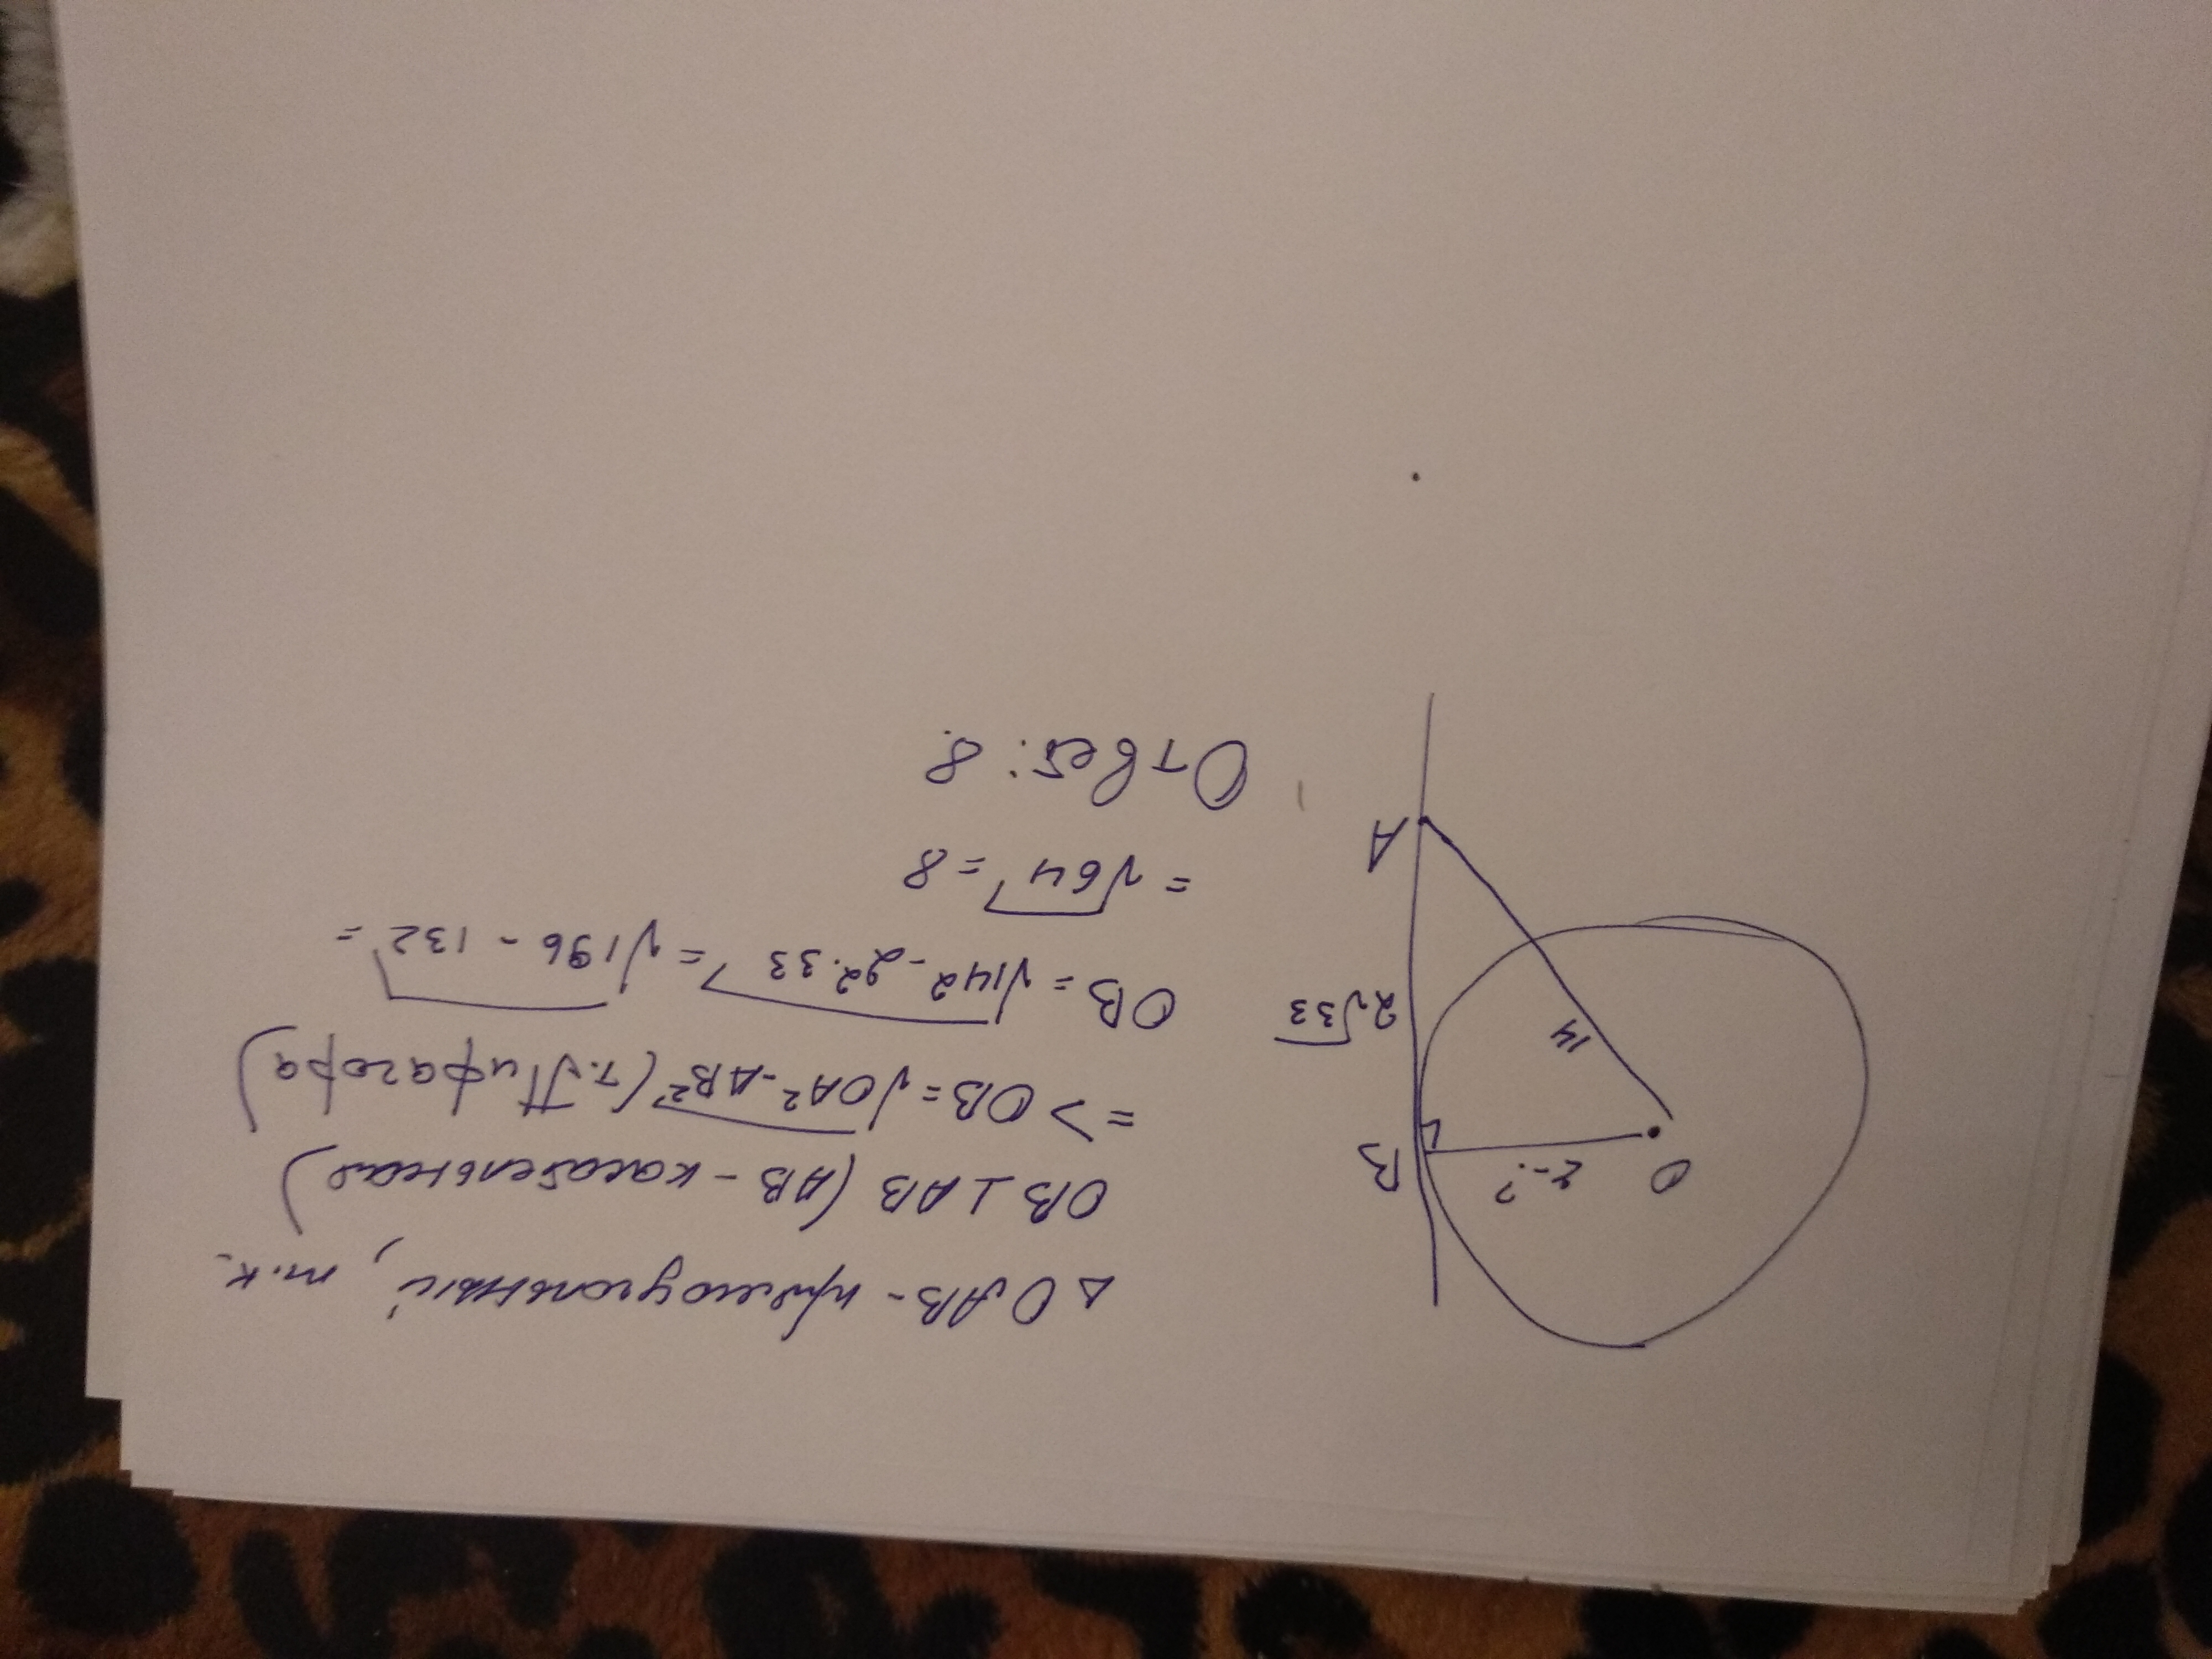 △OAB - прямоугольный, т.к.
OB ⊥ AB (AB - касательная)
=> OB = √OA² - AB² (т. Пифагора)
OB = √14² - 2²·33 = √196 - 132 =
= √64 = 8
Ответ: 8.
O
r - ?
B
14
2√33
A